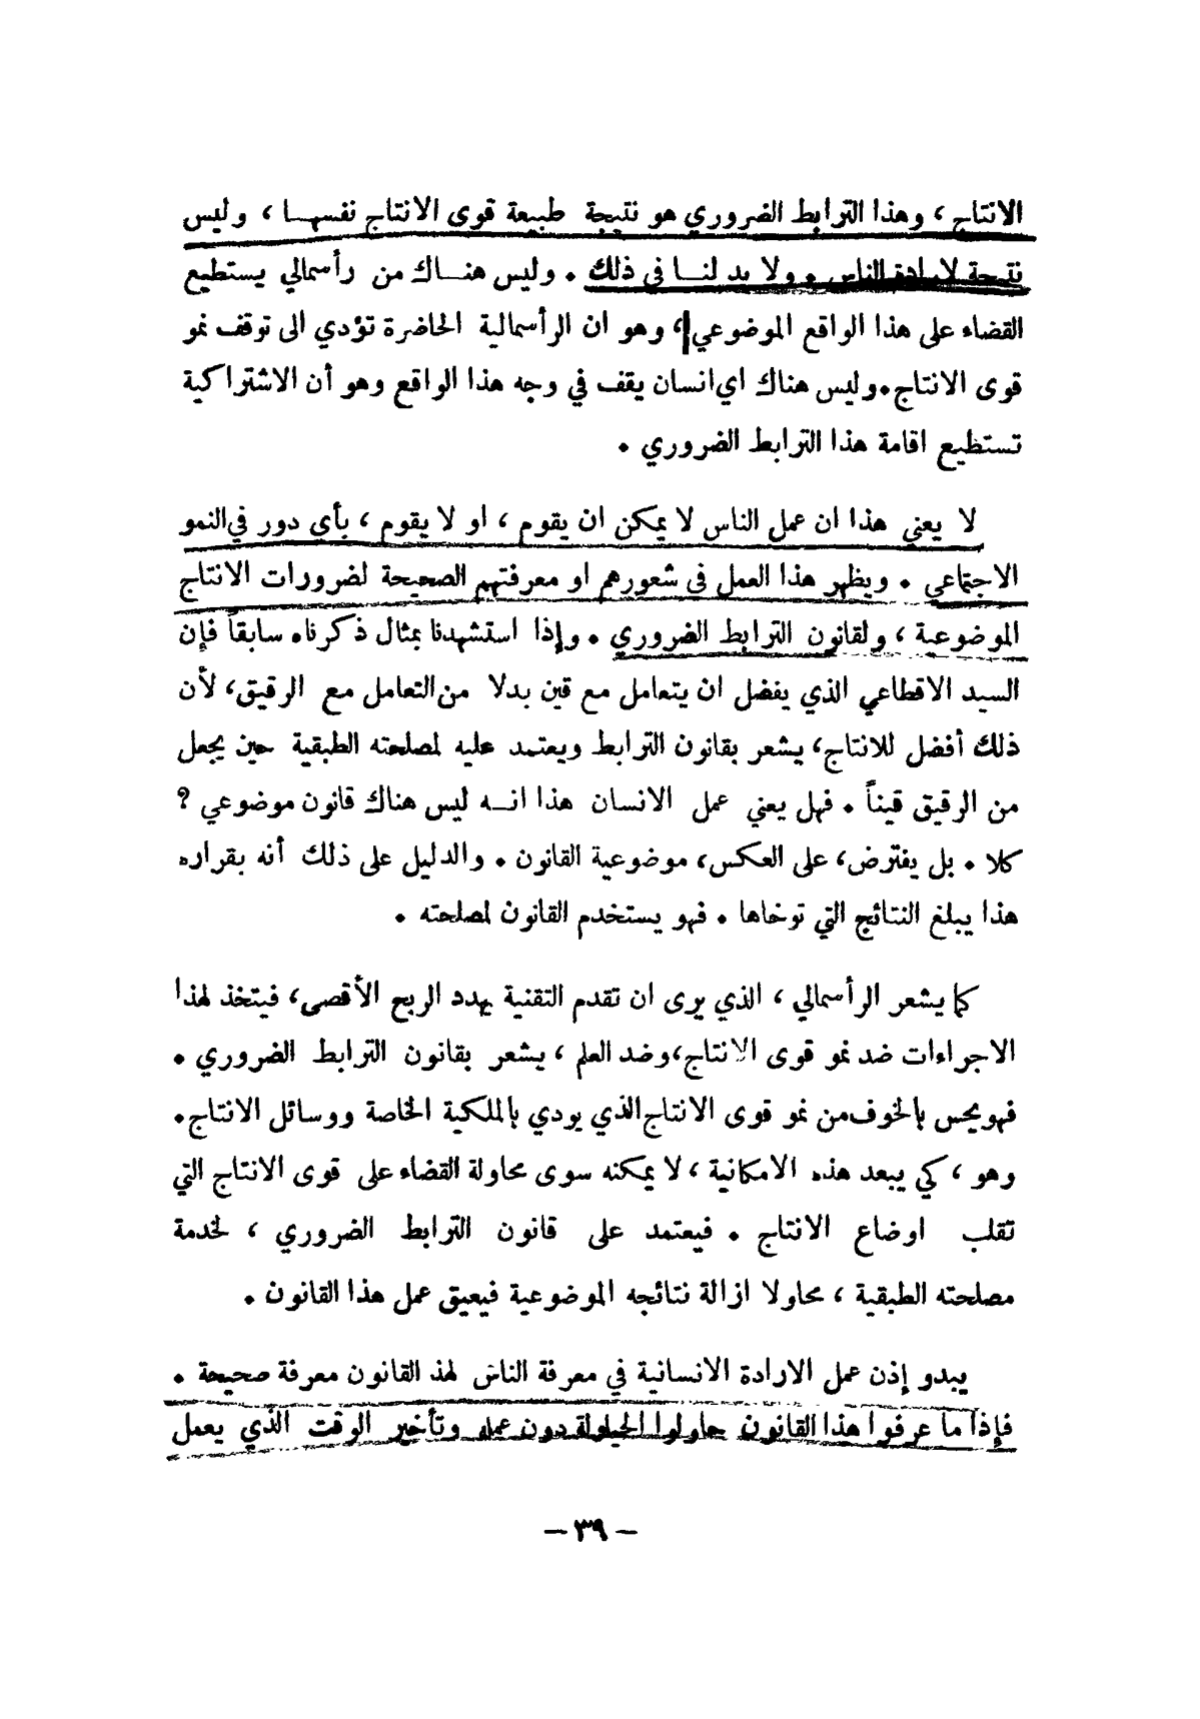 الانتاج ، وهذا الترابط الضروري هو نتيجة طبيعة قوى الانتاج نفسهـا ، وليس
نتيجة لارادة الناس . ولا يد لنــا في ذلك . وليس هنــاك من رأسمالي يستطيع
القضاء على هذا الواقع الموضوعي ، وهو ان الرأسمالية الحاضرة تؤدي الى توقف نمو
قوى الانتاج . وليس هناك اي انسان يقف في وجه هذا الواقع وهو أن الاشتراكية
تستطيع اقامة هذا الترابط الضروري .
لا يعني هذا ان عمل الناس لا يمكن ان يقوم ، او لا يقوم ، بأي دور في النمو
الاجتماعي . ويظهر هذا العمل في شعورهم او معرفتهم الصحيحة لضرورات الانتاج
الموضوعية ، ولقانون الترابط الضروري . وإذا استشهدنا بمثال ذكرناه سابقاً فإن
السيد الاقطاعي الذي يفضل ان يتعامل مع قين بدلا من التعامل مع الرقيق ، لأن
ذلك أفضل للانتاج ، يشعر بقانون الترابط ويعتمد عليه لمصلحته الطبقية حين يجعل
من الرقيق قيناً . فهل يعني عمل الانسان هذا انــه ليس هناك قانون موضوعي ؟
كلا . بل يفترض ، على العكس ، موضوعية القانون . والدليل على ذلك أنه بقراره
هذا يبلغ النتائج التي توخاها . فهو يستخدم القانون لمصلحته .
كما يشعر الرأسمالي ، الذي يرى ان تقدم التقنية يهدد الربح الأقصى ، فيتخذ لهذا
الاجراءات ضد نمو قوى الانتاج ، وضد العلم ، يشعر بقانون الترابط الضروري .
فهو يحس بالخوف من نمو قوى الانتاج الذي يودي بالملكية الخاصة ووسائل الانتاج .
وهو ، كي يبعد هذه الامكانية ، لا يمكنه سوى محاولة القضاء على قوى الانتاج التي
تقلب اوضاع الانتاج . فيعتمد على قانون الترابط الضروري ، لخدمة
مصلحته الطبقية ، محاولا ازالة نتائجه الموضوعية فيعيق عمل هذا القانون .
يبدو إذن عمل الارادة الانسانية في معرفة الناس لهذ القانون معرفة صحيحة .
فإذا ما عرفوا هذا القانون حاولوا الحيلولة دون عمله وتأخير الوقت الذي يعمل
– ٣٩ –